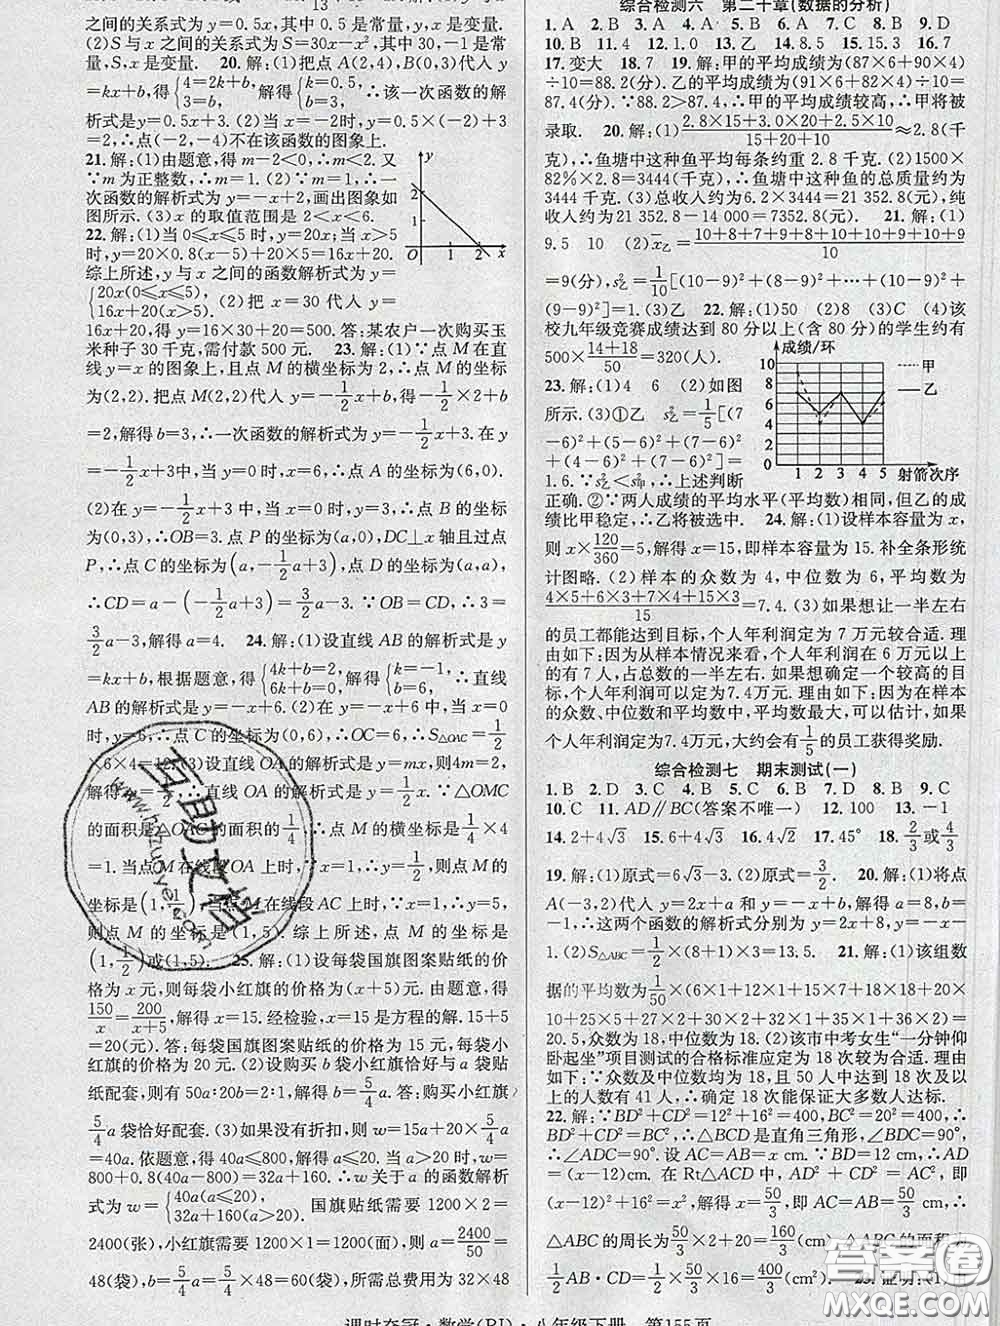 之间的关系式为y=0.5x,其中0.5是常量,x,y是变量.
(2)S与x之间的关系式为S=30x-x²,其中30,-1是常
量,S,x是变量. 20.解:(1)把点A(2,4),B(0,3)代入y=
kx+b,得{4=2k+b, 3=b, 解得{k=1/2, b=3, ∴该一次函数的解
析式为y=0.5x+3. (2)当x=-2时,y=0.5×(-2)+3
=2,∴点(-2,-4)不在该函数的图象上.
21.解:(1)由题意,得m-2<0,∴m<2. 又
∵m为正整数,∴m=1. (2)由(1)得,∴一
次函数的解析式为y=-x+2,画出图象如
图所示. (3)x的取值范围是2<x<6.
22.解:(1)当0⩽x⩽5时,y=20x;当x>5
时,y=20×0.8(x-5)+20×5=16x+20.
综上所述,y与x之间的函数解析式为y=
{20x(0⩽x⩽5), 16x+20(x>5). (2)把x=30代入y=
16x+20,得y=16×30+20=500. 答:某农户一次购买玉
米种子30千克,需付款500元. 23.解:(1)∵点M在直
线y=x的图象上,且点M的横坐标为2,∴点M的坐标
为(2,2). 把点M(2,2)代入y=-1/2x+b,得-1/2×2+b
=2,解得b=3,∴一次函数的解析式为y=-1/2x+3. 在y=
-1/2x+3中,当y=0时,x=6,∴点A的坐标为(6,0).
(2)在y=-1/2x+3中,当x=0时,y=3,∴点B的坐标
为(0,3),∴OB=3. ∵点P的坐标为(a,0),DC⊥x轴且过点
P,∴点C的坐标为(a,-1/2a+3),点D的坐标为(a,a),
∴CD=a-(-1/2a+3)=3/2a-3. ∵OB=CD,∴3=
3/2a-3,解得a=4. 24.解:(1)设直线AB的解析式是y
=kx+b,根据题意,得{4k+b=2, 6k+b=0, 解得{k=-1, b=6, ∴直线
AB的解析式是y=-x+6. (2)在y=-x+6中,当x=0时,
y=6,∴点C的坐标为(0,6),∴OC=6,∴S△OAC=1/2
×6×4=12. (3)设直线OA的解析式是y=mx,则4m=2,
解得m=1/2,∴直线OA的解析式是y=1/2x. ∵△OMC
的面积是△OAC的面积的1/4,∴点M的横坐标是1/4×4
=1. 当点M在线段OA上时,∵x=1,∴y=1/2,则点M的
坐标是(1,1/2);当点M在线段AC上时,∵x=1,∴y=5,
则点M的坐标是(1,5). 综上所述,点M的坐标是
(1,1/2)或(1,5). 25.解:(1)设每袋国旗图案贴纸的价
格为x元,则每袋小红旗的价格为(x+5)元. 由题意,得
150/x=200/(x+5),解得x=15. 经检验,x=15是方程的解. 15+5
=20(元). 答:每袋国旗图案贴纸的价格为15元,每袋小
红旗的价格为20元. (2)设购买b袋小红旗恰好与a袋贴纸
配套,则有50a∶20b=2∶1,解得b=5/4a. 答:购买小红旗
5/4a袋恰好配套. (3)如果没有折扣,则w=15a+20×5/4a=
40a. 依题意,得40a⩽800,解得a⩽20. 当a>20时,w=
800+0.8(40a-800)=32a+160. ∴w关于a的函数解析
式为w={40a(a⩽20), 32a+160(a>20). 国旗贴纸需要1200×2=
2400(张),小红旗需要1200×1=1200(面),则a=2400/50=
48(袋),b=5/4a=5/4×48=60(袋),所需总费用为32×48
综合检测六 第二十章(数据的分析)
1.A 2.A 3.D 4.A 5.C 6.A 7.C 8.B 9.D
10.B 11.4 12.乙 13.2 14.8.5 15.15.3 16.7
17.变大 18.7 19.解:甲的平均成绩为(87×6+90×4)
÷10=88.2(分). 乙的平均成绩为(91×6+82×4)÷10=
87.4(分). ∵88.2>87.4,∴甲的平均成绩较高,∴甲将被
录取. 20.解:(1)(2.8×15+3.0×20+2.5×10)/(15+20+10)≈2.8(千
克),∴鱼塘中这种鱼平均每条约重2.8千克. (2)1500×
82%×2.8=3444(千克),∴鱼塘中这种鱼的总质量约为
3444千克. (3)总收入约为6.2×3444=21 352.8(元),纯
收入约为21 352.8-14 000=7352.8(元). 21.解:(1)
9.5 10 (2)x̄乙=(10+8+7+9+8+10+10+9+10+9)/10
=9(分),s²乙=1/10[(10-9)²+(8-9)²+(7-9)²+…+
(9-9)²]=1. (3)乙 22.解:(1)50 (2)8 (3)C (4)该
校九年级竞赛成绩达到80分以上(含80分)的学生约有
500×(14+18)/50=320(人).
23.解:(1)4 6 (2)如图
所示. (3)①乙 s²乙=1/5[(7
-6)²+(5-6)²+(7-6)²+
(4-6)²+(7-6)²]=
1.6. ∵s²乙<s²甲,∴上述判断
正确. ②∵两人成绩的平均水平(平均数)相同,但乙的成
绩比甲稳定,∴乙将被选中. 24.解:(1)设样本容量为x,
则x×120/360=5,解得x=15,即样本容量为15. 补全条形统
计图略. (2)样本的众数为4,中位数为6,平均数为
(4×5+6×3+7×4+15×3)/15=7.4. (3)如果想让一半左右
的员工都能达到目标,个人年利润定为7万元较合适. 理
由如下:因为从样本情况来看,个人年利润在6万元以上
的有7人,占总数的一半左右. 如果想确定一个较高的目
标,个人年利润可以定为7.4万元. 理由如下:因为在样本
的众数、中位数和平均数中,平均数最大,可以估计,如果
个人年利润定为7.4万元,大约会有1/5的员工获得奖励.
综合检测七 期末测试(一)
1.B 2.D 3.C 4.A 5.D 6.A 7.B 8.B 9.C
10.C 11.AD∥BC(答案不唯一) 12.100 13.-1
14.2+4√3 15.6+4√3 16.4 17.45° 18.2/3或4/3
19.解:(1)原式=6√3-3. (2)原式=3/2. 20.解:(1)将点
A(-3,2)代入y=2x+a和y=-x+b,得a=8,b=
-1,∴这两个函数的解析式分别为y=2x+8,y=-x-
1. (2)S△ABC=1/2×(8+1)×3=13.5. 21.解:(1)该组数
据的平均数为1/50×(6×1+12×1+15×7+18×18+20×
10+25×5+27×2+30×2+32×1+35×1+36×2)=
20.5,众数为18,中位数为18. (2)该市中考女生“一分钟仰
卧起坐”项目测试的合格标准应定为18次较为合适. 理由
如下:∵众数及中位数均为18,且50人中达到18次及以
上的人数有41人,∴确定18次能保证大多数人达标.
22.解:∵BD²+CD²=12²+16²=400,BC²=20²=400,∴
BD²+CD²=BC²,∴△BCD是直角三角形,∠BDC=90°,
∴∠ADC=90°. 设AB=AC=x cm,∵BD=12 cm,∴AD
=(x-12)cm. 在Rt△ACD中,AD²+CD²=AC²,即
(x-12)²+16²=x²,解得x=50/3,即AC=AB=50/3 cm,∴
△ABC的周长为50/3×2+20=160/3(cm),△ABC的面积为
1/2AB·CD=1/2×50/3×16=400/3(cm²). 23.证明:(1)
课时夺冠·数学(RJ)·八年级下册 第155页
互助文档
答案圈
MXQE.COM